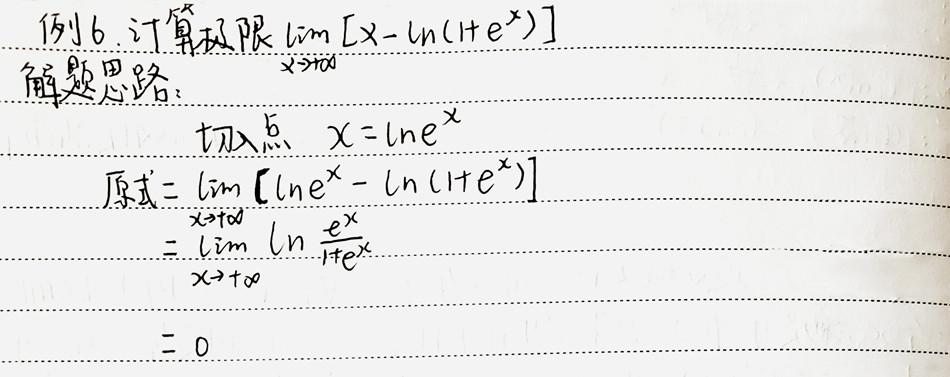 例6.计算极限 lim [x-ln(1+e^x)]
x→+∞
解题思路:
切入点 x=lne^x
原式= lim [lne^x - ln(1+e^x)]
x→+∞
= lim ln e^x/(1+e^x)
x→+∞
= 0